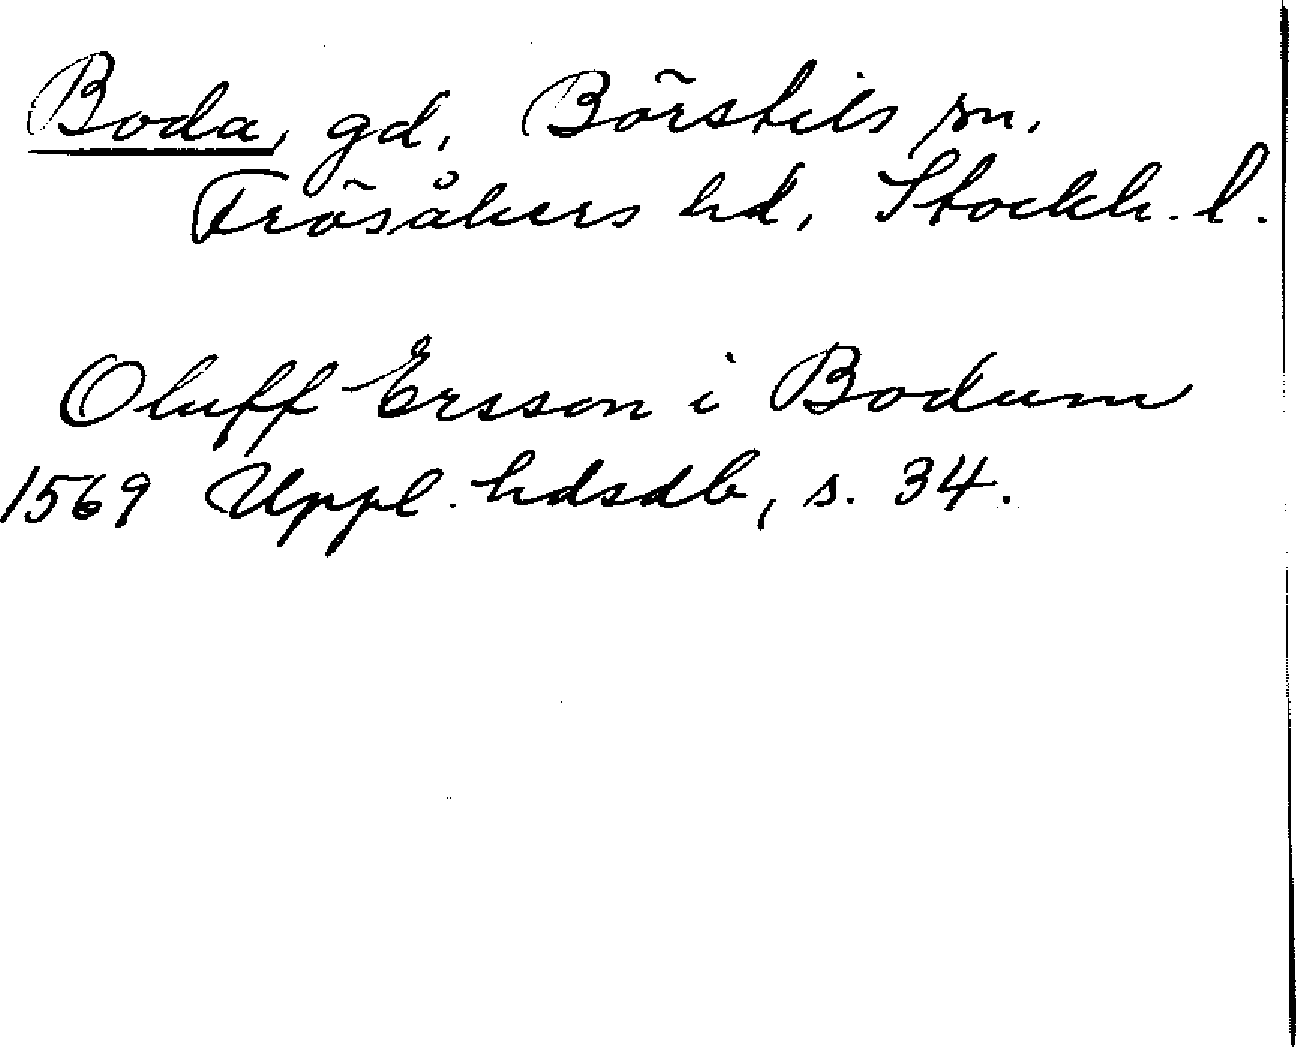 Boda, gd, Börstils sn,
Frösåkers hd, Stockh. l.
Oluff Ersson i Bodum
1569 Uppl. hdsdb, s. 34.